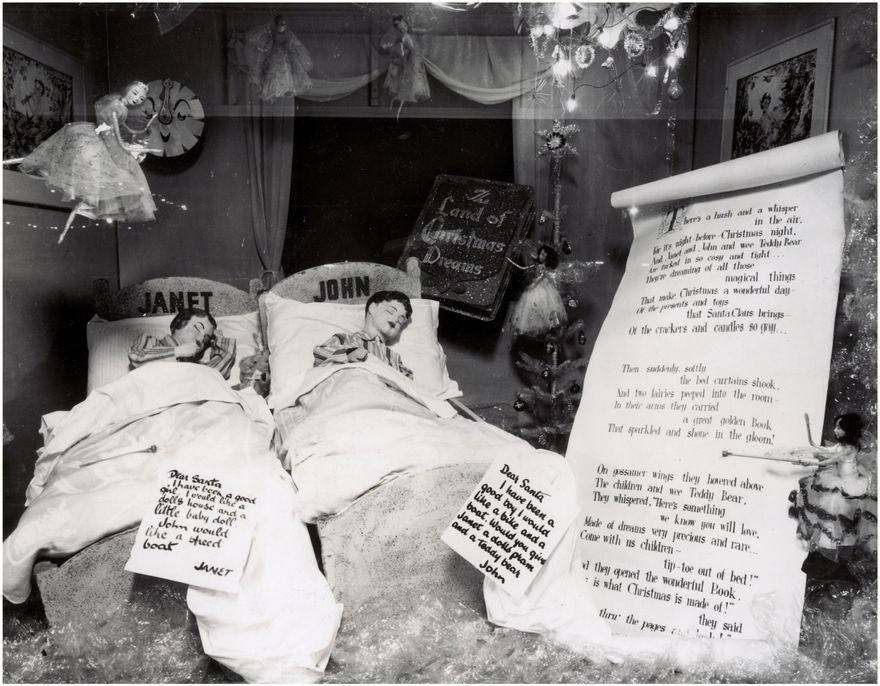 JANET
JOHN
Land of
Christmas
Dreams
Dear Santa
I have been a good
girl, I would like a
dolls house and a
little baby doll
John would
like a speed
boat
JANET
Dear Santa
I have been a
good boy I would
like a bike and a
boat. Would you give
Janet a dolls pram
and a teddy bear
John
There's a hush and a whisper
in the air,
For it's night-before-Christmas night,
And Janet and John and wee Teddy Bear
Are tucked in so cosy and tight...
They're dreaming of all those
magical things
That make Christmas a wonderful day-
Of the presents and toys
that Santa Claus brings-
Of the crackers and candles so gay...
Then suddenly, softly
the bed curtains shook,
And two fairies peeped into the room-
In their arms they carried
a great golden Book
That sparkled and shone in the gloom!
On gossamer wings they hovered above
The children and wee Teddy Bear,
They whispered, "Here's something
we know you will love,
Made of dreams very precious and rare...
Come with us children-
tip-toe out of bed!"
they opened the wonderful Book,
is what Christmas is made of!"
they said
thru' the pages